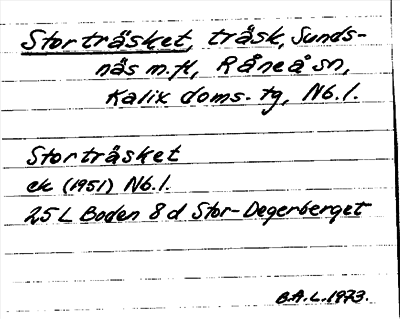 Storträsket, träsk, Sunds-
näs m.fl, Råneå sn,
Kalix doms. tg, Nb.l.
Storträsket
ek (1951) Nb.l.
25 L Boden 8 d Stor-Degerberget
B.A.L. 1973.